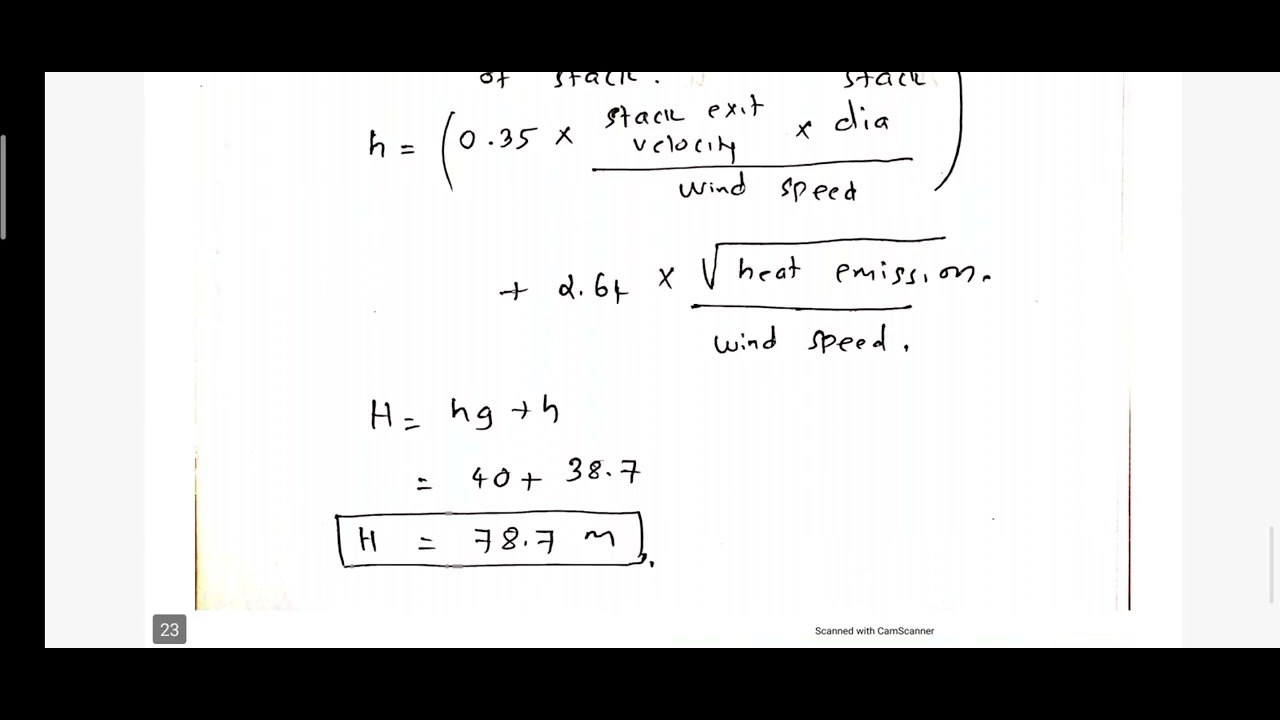 of stack. stack
h = ( 0.35 × stack exit velocity × dia
wind speed )
+ 2.64 × √ heat emission.
wind speed.
H = hg + h
= 40 + 38.7
H = 78.7 m.
23
Scanned with CamScanner